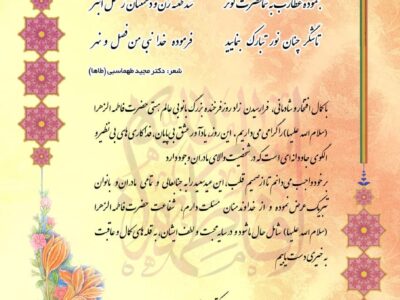 بنموده خطاب به نما حضرت کوثر
شد طعنه زن و دشمنتان زنسل ابتر
تا شکر چنان نور تبارک بنمایید
فرموده خدا نبی من فصل و نهر
شعر: دکتر مجید طهماسبی (طاها)
با کمال افتخار و شادمانی، فرا رسیدن زاد روز فرخنده بزرگ بانوی عالم هستی حضرت فاطمه الزهرا
(سلام الله علیها) را گرامی می داریم ، این روز، یادآور عشق بی پایان، فداکاری های بی نظیر و
الگوی جاودانه ای است که در شخصیت والای مادران وجود دارد
بر خود واجب می دانم تا از صمیم قلب، این عید سعید را به جنابعالی و تمامی مادران و بانوان
تبریک عرض نموده و از خداوند منان مسئلت دارم، شفاعت حضرت فاطمه الزهرا
(سلام الله علیها) شامل حال ما شود و در سایه محبت و لطف ایشان، به قله های کمال و عاقبت
به خیری دست یابیم